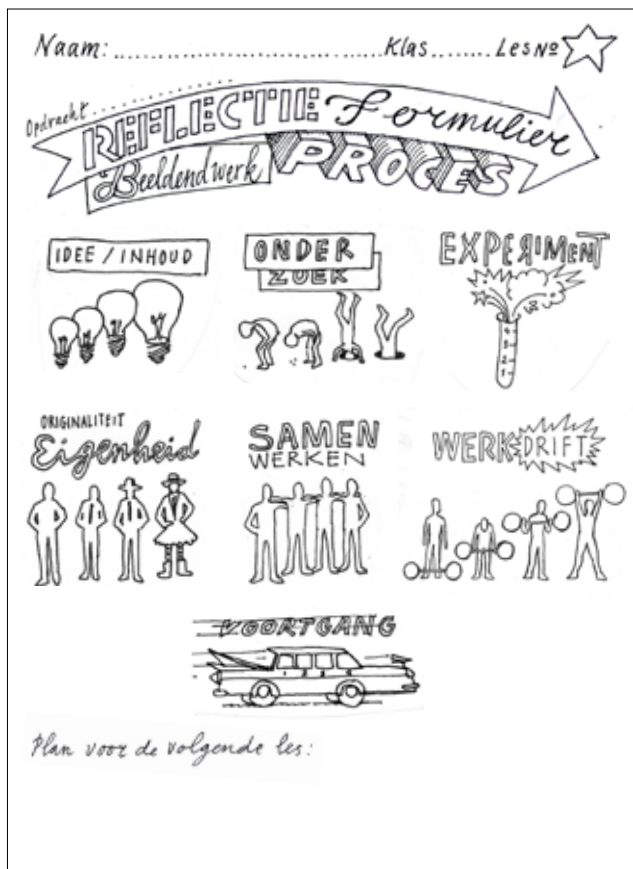 Naam: .......................................... Klas ........ Les No
Opdracht ....................
REFLECTIE Formulier
Beeldend werk PROCES
IDEE / INHOUD
ONDER
ZOEK
EXPERIMENT
ORIGINALITEIT
Eigenheid
SAMEN
WERKEN
WERKDRIFT
VOORTGANG
Plan voor de volgende les: